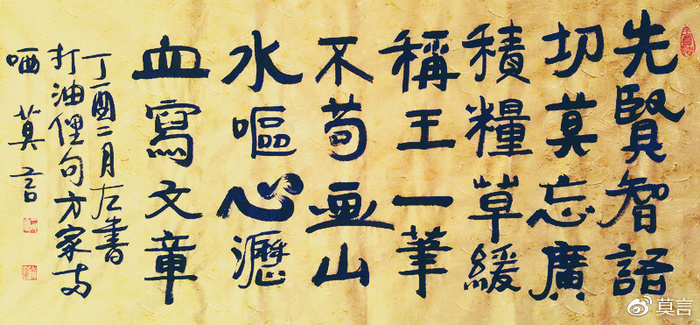 先賢智語
切莫忘廣
積糧草緩
稱王一筆
不苟画山
水嘔心瀝
血寫文章
丁酉二月左書
打油俚句方家
哂 莫言
莫言